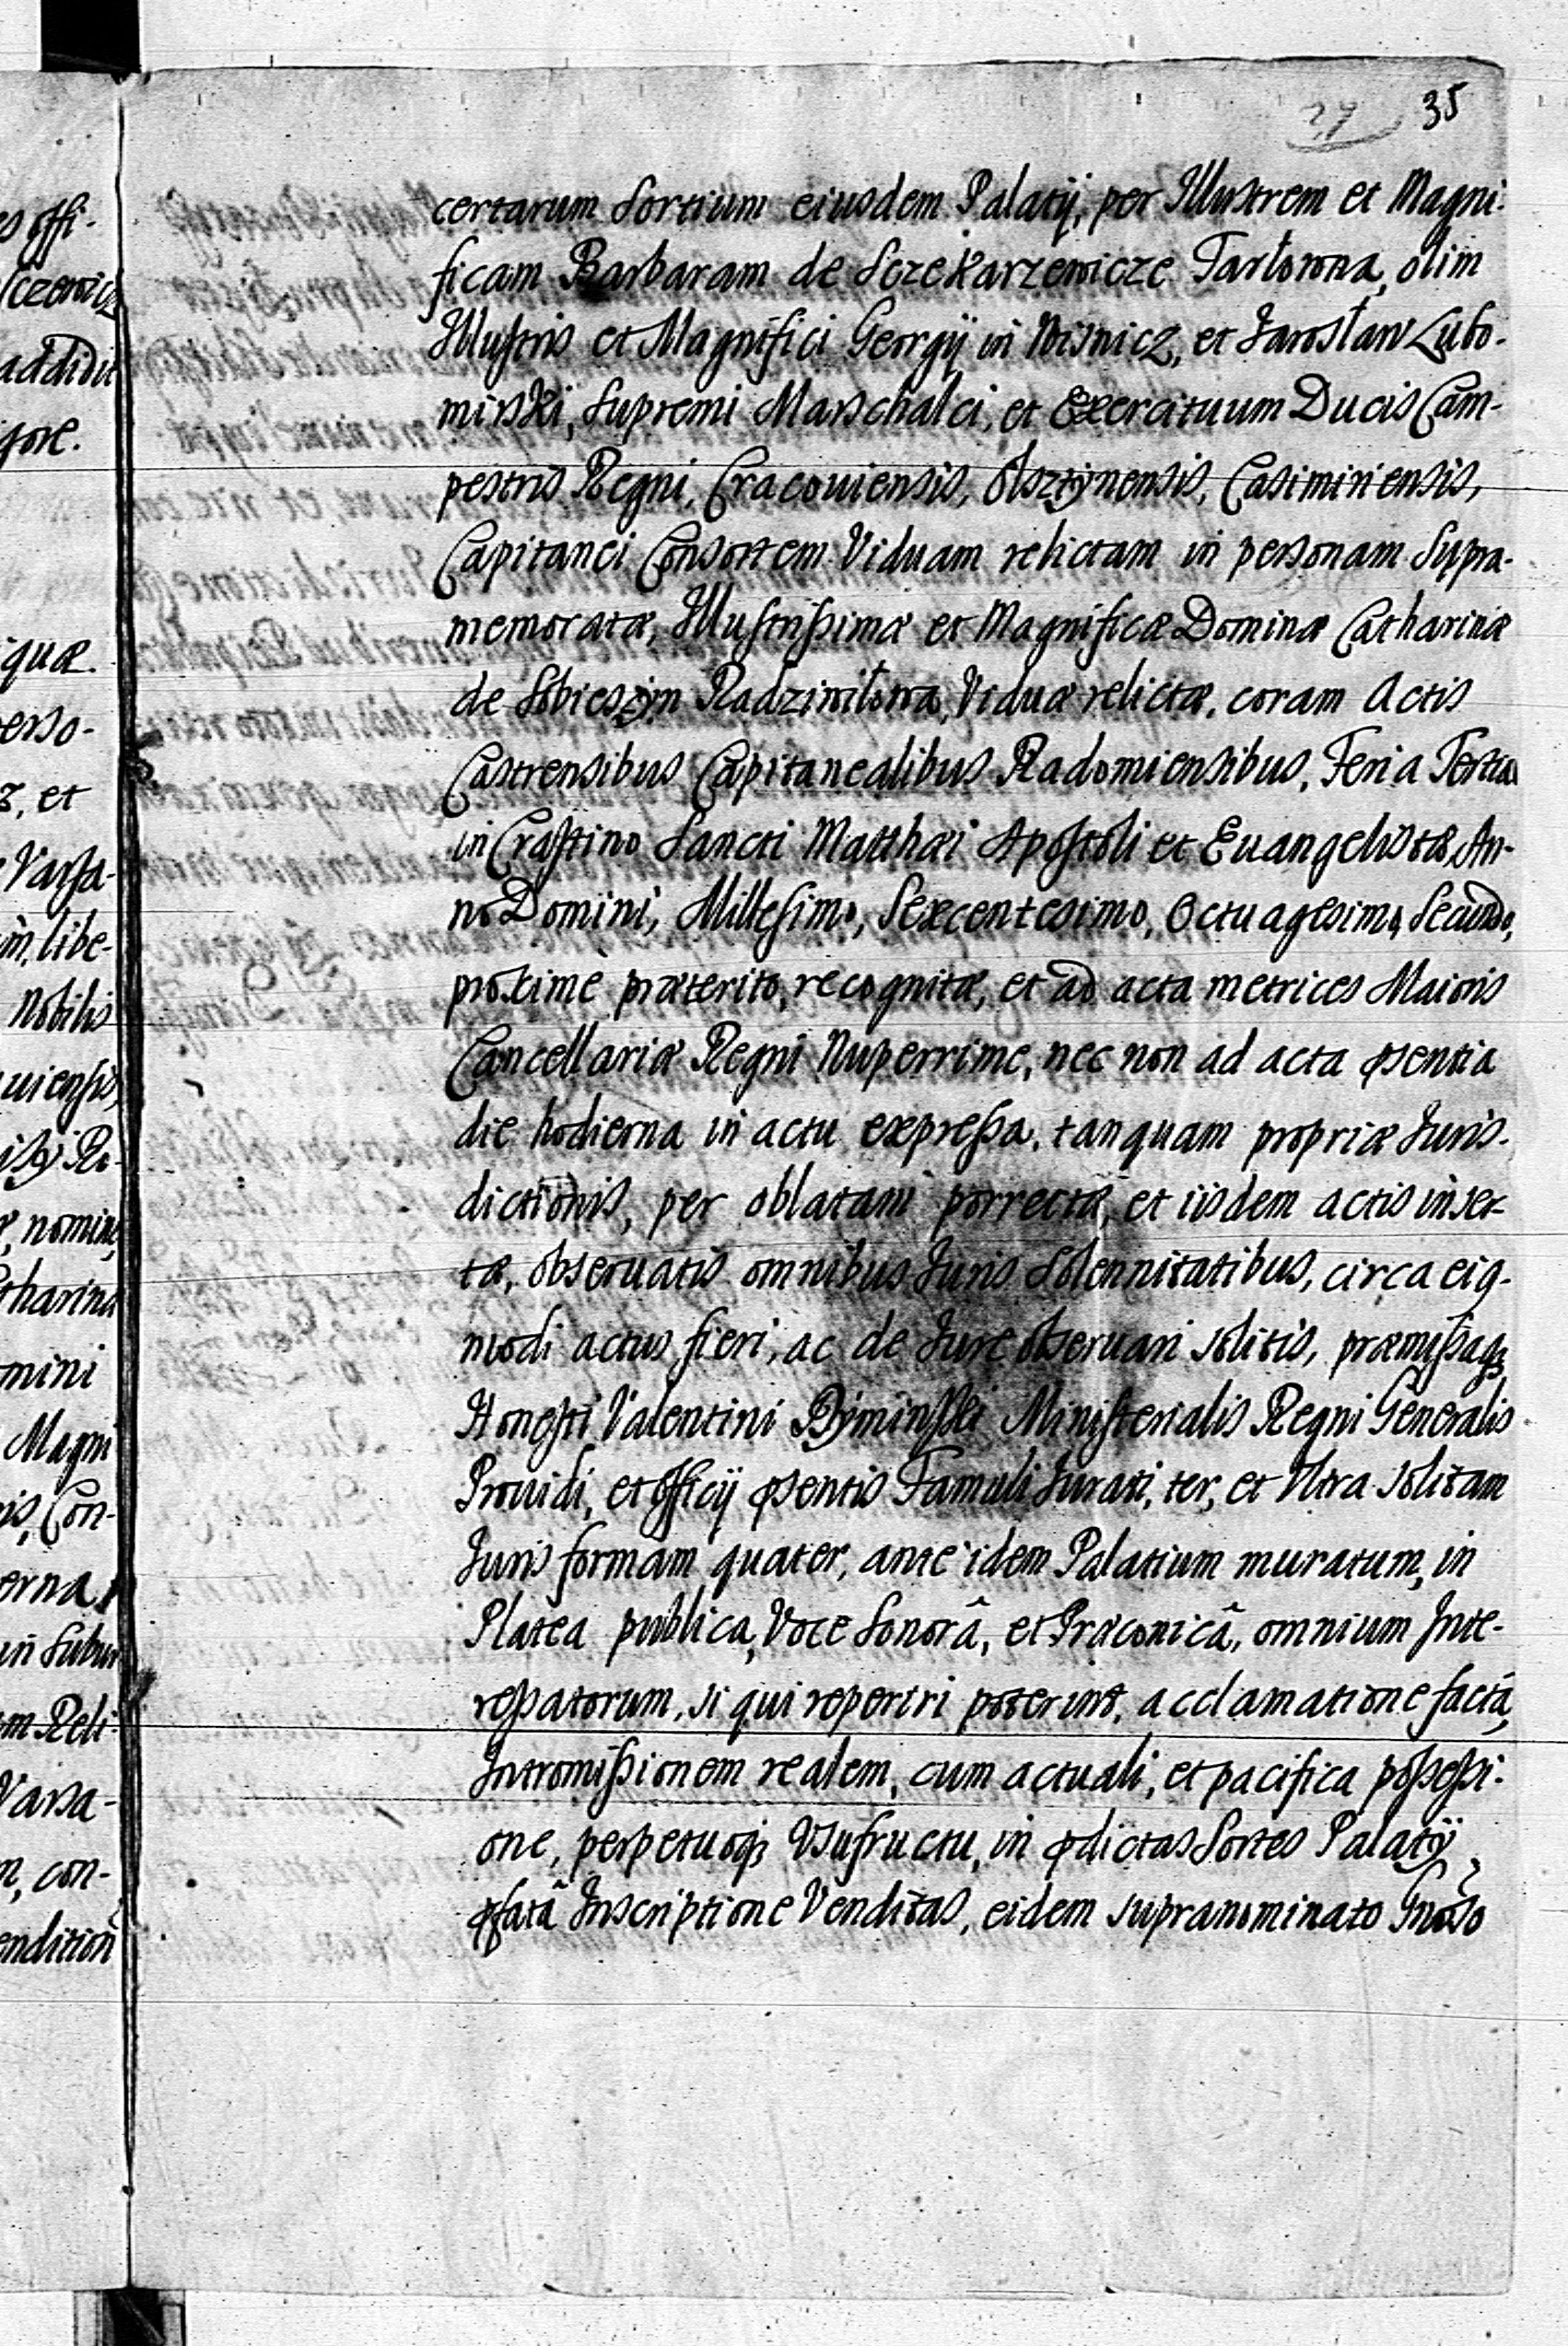 27 35
es offi-
certarum Sortium eiusdem Palatij, per Illustrem et Magni-
ficam Barbaram de Sczekarzewicze Tarłowna, olim
addidit
Illustris et Magnifici Georgij in Wisnicz, et Jarosław Lubo-
mirski, Supremi Marschalci, et Exercituum Ducis Cam-
pestris Regni, Cracouiensis, Olsztynensis, Casimiriensis,
Capitanei Consortem Viduam relictam in personam Supra-
memoratæ, Illustrissimæ et Magnificæ Dominæ Catharinæ
quæ.
de Sobieszyn Radziwiłowa, Viduæ relictæ, coram Actis
erso-
Castrensibus Capitanealibus Radomiensibus, Feria Tertia
et
in Crastino Sancti Matthæi Apostoli et Euangelistæ, An-
Varsa-
no Domini, Millesimo, Sexcentesimo, Octuagesimo, Secundo,
libe-
proximè præterito, recognitæ, et ad acta metrices Maioris
Nobilis
Cancellariæ Regni Nuperrime, nec non ad acta psentia
uiensis,
die hodierna in actu expressa, tanquam propriæ Juris-
dictionis, per oblatam porrectæ, et iisdem actis inser-
nomine
tæ, obseruatis omnibus Juris Solennitatibus, circa eig-
tharina
modi actus fieri, ac de Jure obseruari solitis, præmissaq;
mini
Honesti Valentini Ministerialis Regni Generalis
Magni
Prouidi, et Officij psentis Famuli Jurati, ter, et Vltra solitam
is, Con-
Juris formam quater, ante idem Palatium muratum, in
erna,
Platea publica, Voce Sonorâ, et Præconicâ, omnium Inte-
in Subur
ressatorum, si qui reperiri poterint, acclamatione factâ,
m Reli-
Intromissionem realem, cum actuali, et pacifica possessi-
Varsa-
one, perpetuoq; Vsufructu, in pdictas Sortes Palatij
con-
pfatâ Inscriptione Venditas, eidem supranominato Gnoso
endition